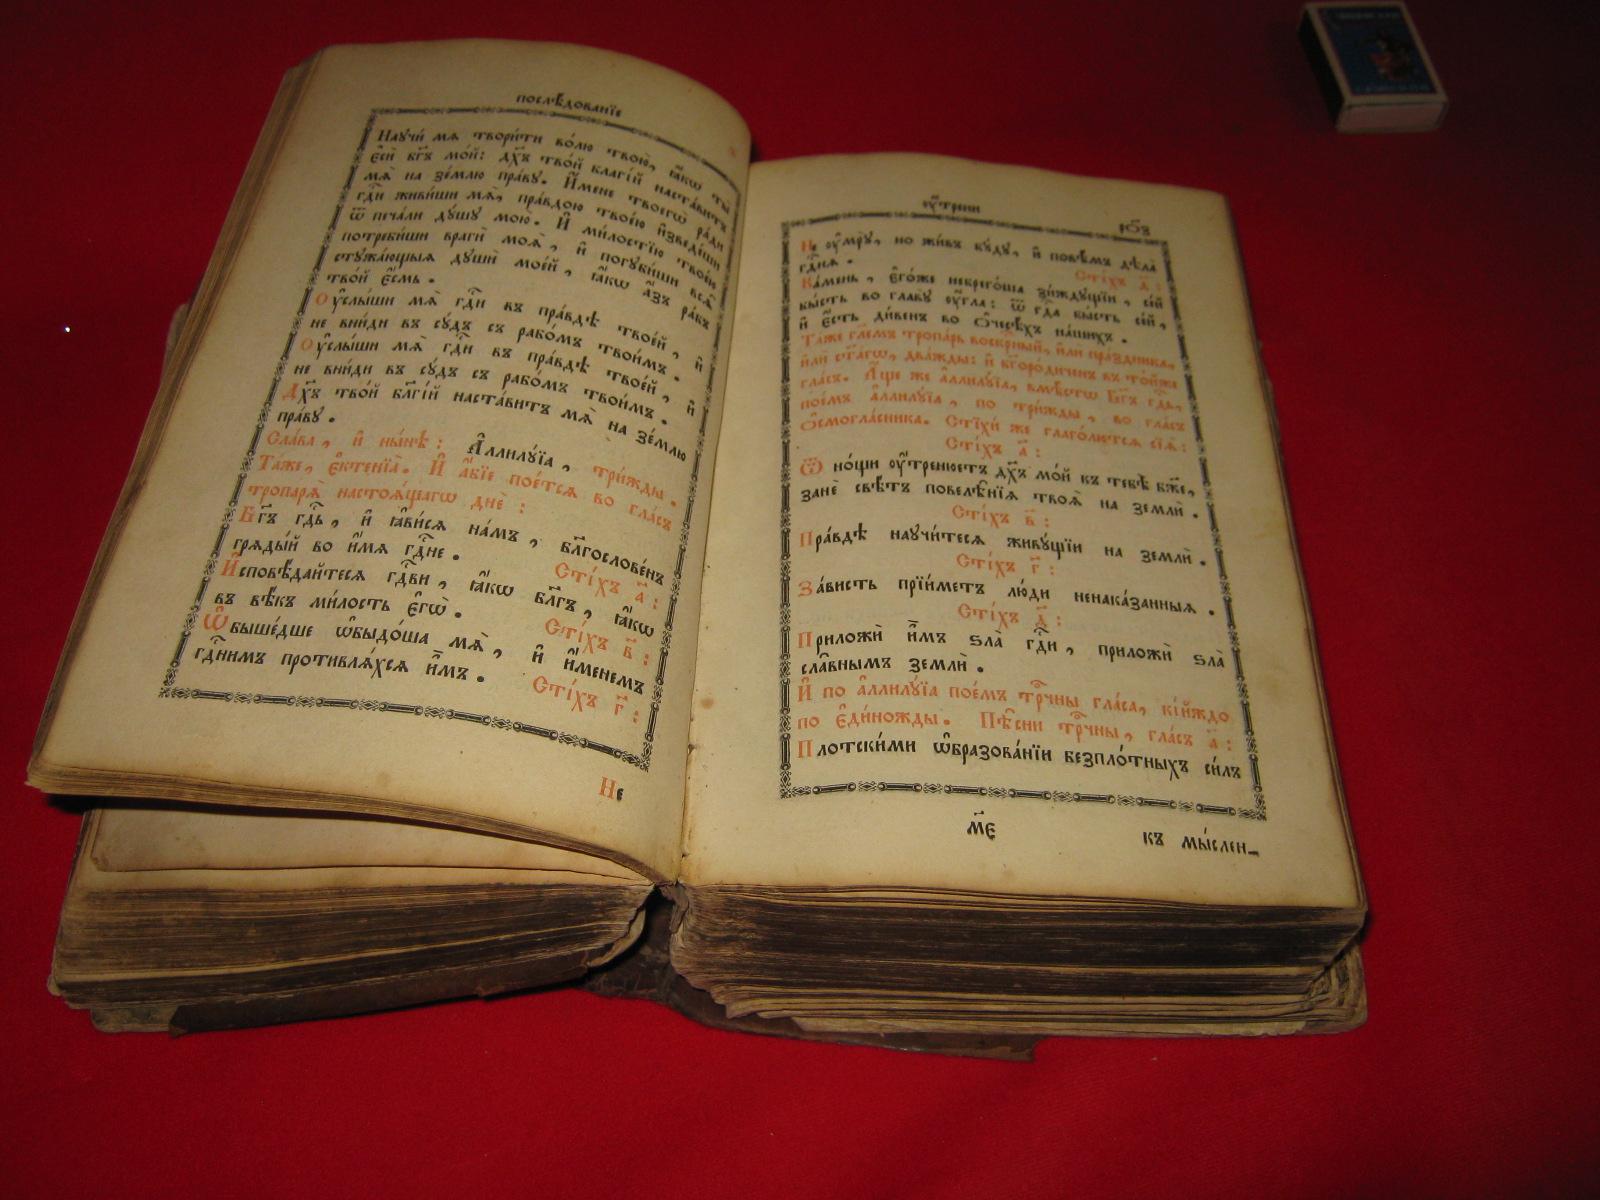 послѣ́дованїе
Научи́ мѧ твори́ти во́лю твою̀, ꙗ҆́кѡ ты̀
є҆сѝ бг҃ъ мо́й: дх҃ъ тво́й благі́й наста́витъ
мѧ̀ на зе́млю пра́ву. И҆́мене твоегѡ̀ ра́ди
гдⷭ҇и живи́ши мѧ̀, пра́вдою твое́ю и҆зведе́ши
ѿ печа́ли дꙋ́шꙋ мою̀. И҆ ми́лостїю твое́ю
потреби́ши врагѝ моѧ̀, и҆ погꙋби́ши всѧ̀
стꙋжа́ющыѧ дꙋшѝ мое́й, ꙗ҆́кѡ а҆́зъ ра́бъ
тво́й є҆́смь.
Оу҆слы́ши мѧ̀ гдⷭ҇и въ пра́вдѣ твое́й, и҆
не вни́ди въ сꙋ́дъ съ рабо́мъ твои́мъ.
Оу҆слы́ши мѧ̀ гдⷭ҇и въ пра́вдѣ твое́й, и҆
не вни́ди въ сꙋ́дъ съ рабо́мъ твои́мъ.
Дх҃ъ тво́й бл҃гі́й наста́витъ мѧ̀ на зе́млю
пра́вꙋ.
Сла́ва, и҆ ны́нѣ: А҆ллилꙋ́їа, три́жды.
Та́же, є҆ктенїа̀. И҆ а҆́бїе пое́тсѧ во гла́съ
тропарѧ̀ настоѧ́щагѡ днѐ:
Бг҃ъ гдⷭ҇ь, и҆ ꙗ҆ви́сѧ на́мъ, бл҃гослове́нъ
грѧды́й во и҆́мѧ гдⷭ҇не. Сті́хъ а҃:
И҆сповѣ́дайтесѧ гдⷭ҇ви, ꙗ҆́кѡ бл҃гъ, ꙗ҆́кѡ
въ вѣ́къ ми́лость є҆гѡ̀. Сті́хъ в҃:
Ѡ҆бы́шедше ѡ҆быдо́ша мѧ̀, и҆ и҆́менемъ
гдⷭ҇нимъ противлѧ́хсѧ и҆̀мъ. Сті́хъ г҃:
Не
оу҆́трени
рѯ҃з
Не оу҆мрꙋ̀, но жи́въ бꙋ́дꙋ, и҆ повѣ́мъ дѣла̀
гдⷭ҇нѧ. Сті́хъ д҃:
Ка́мень, є҆го́же небрего́ша зи́ждꙋщїи, се́й
бы́сть во главꙋ̀ оу҆́гла: ѿ гдⷭ҇а бы́сть се́й,
и҆ є҆́сть ди́венъ во ѻ҆чесѣ́хъ на́шихъ.
Та́же гл҃емъ тропа́рь воскрⷭ҇ный, и҆лѝ пра́здника,
и҆лѝ ст҃а́гѡ, два́жды: и҆ бг҃оро́диченъ въ то́йже
гла́съ. А҆́ще же а҆ллилꙋ́їа, вмѣ́стѡ Бг҃ъ гдⷭ҇ь,
пое́мъ а҆ллилꙋ́їа, по три́жды, во гла́съ
ѻ҆смогла́сника. Стїхѝ же глаго́лютсѧ сїѧ̀:
Сті́хъ а҃:
Ѿ но́щи оу҆́тренюетъ дх҃ъ мо́й къ тебѣ̀ бж҃е,
занѐ свѣ́тъ повелѣ̑нїѧ твоѧ̑ на землѝ.
Сті́хъ в҃:
Пра́вдѣ наꙋчи́тесѧ живꙋ́щїи на землѝ.
Сті́хъ г҃:
За́висть прїи́метъ лю́ди ненака̑занныѧ.
Сті́хъ д҃:
Приложѝ и҆̀мъ ѕла̀ гдⷭ҇и, приложѝ ѕла̀
сла̑внымъ землѝ.
И҆ по а҆ллилꙋ́їа пое́мъ трⷪ҇чны гла́са, кі́йждо
по є҆ди́ножды. Пѣ̑сни трⷪ҇чны, гла́съ а҃:
Плотски́ми ѡ҆бразова́нїи безпло́тныхъ си́лъ
м҃е къ мы́слен-